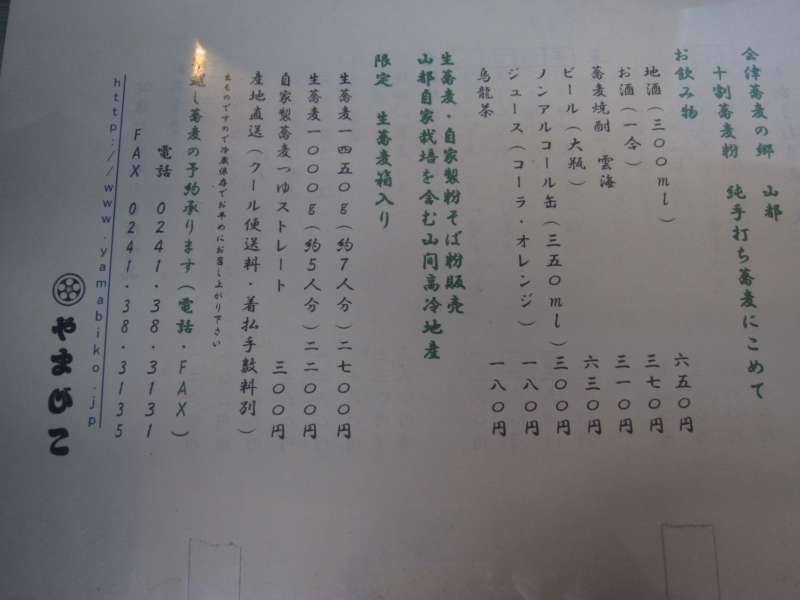 会津蕎麦の郷 山都
十割蕎麦粉 純手打ち蕎麦にこめて
お飲み物
地酒(三〇〇ml) 六五〇円
お酒(一合) 三七〇円
蕎麦焼酎 雲海 三一〇円
ビール(大瓶) 六三〇円
ノンアルコール缶(三五〇ml) 三〇〇円
ジュース(コーラ・オレンジ) 一八〇円
烏龍茶 一八〇円
生蕎麦・自家製粉そば粉販売
山都自家栽培を含む山間高冷地産
限定 生蕎麦箱入り
生蕎麦一四五〇g(約7人分)二七〇〇円
生蕎麦一〇〇〇g(約5人分)二二〇〇円
自家製蕎麦つゆストレート 三〇〇円
産地直送(クール便送料・着払手数料別)
生ものですので冷蔵保存でお早めにお召し上がり下さい
越し蕎麦の予約承ります(電話・FAX)
電話 0241・38・3131
FAX 0241・38・3135
http://www.yamabiko.jp
やまびこ